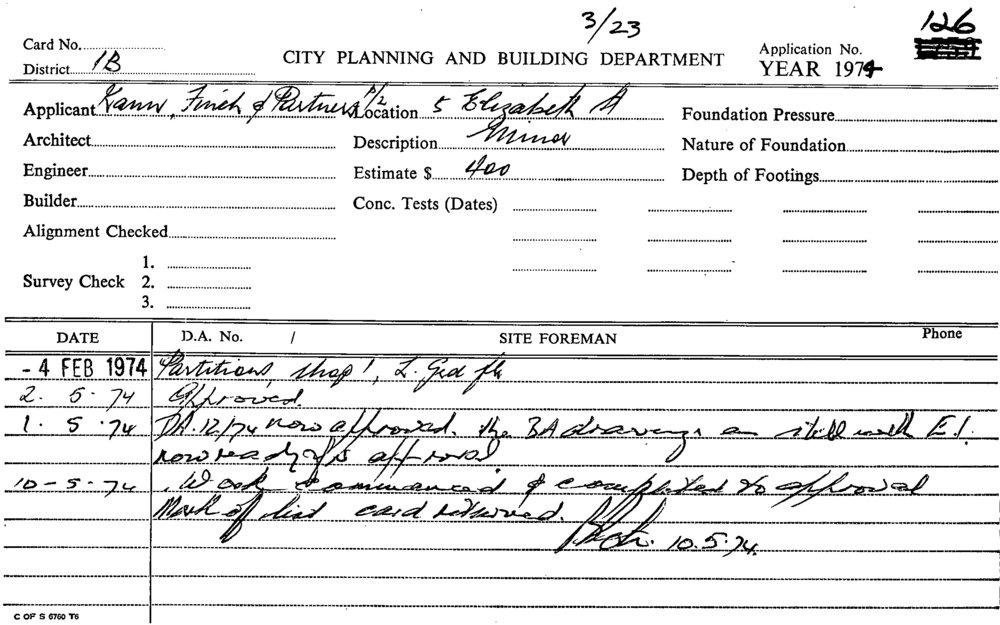 3/23
126
Card No.
District 1B
CITY PLANNING AND BUILDING DEPARTMENT
Application No.
YEAR 1974
Applicant Kann, Finch & Partners P/L Location 5 Elizabeth St Foundation Pressure
Architect Description Minor Nature of Foundation
Engineer Estimate $ 400 Depth of Footings
Builder Conc. Tests (Dates)
Alignment Checked
1.
Survey Check 2.
3.
DATE D.A. No. / SITE FOREMAN Phone
- 4 FEB 1974 Partitions, shop 1, L. Grd flr
2. 5. 74 Approved.
1. 5. 74 DA. 12/74 now approved. the BA drawings are still with E.I.
now ready for approval
10-5-74 Work commenced & completed to approval
Mark off list card returned.
10.5.74.
C OF S 6760 T6